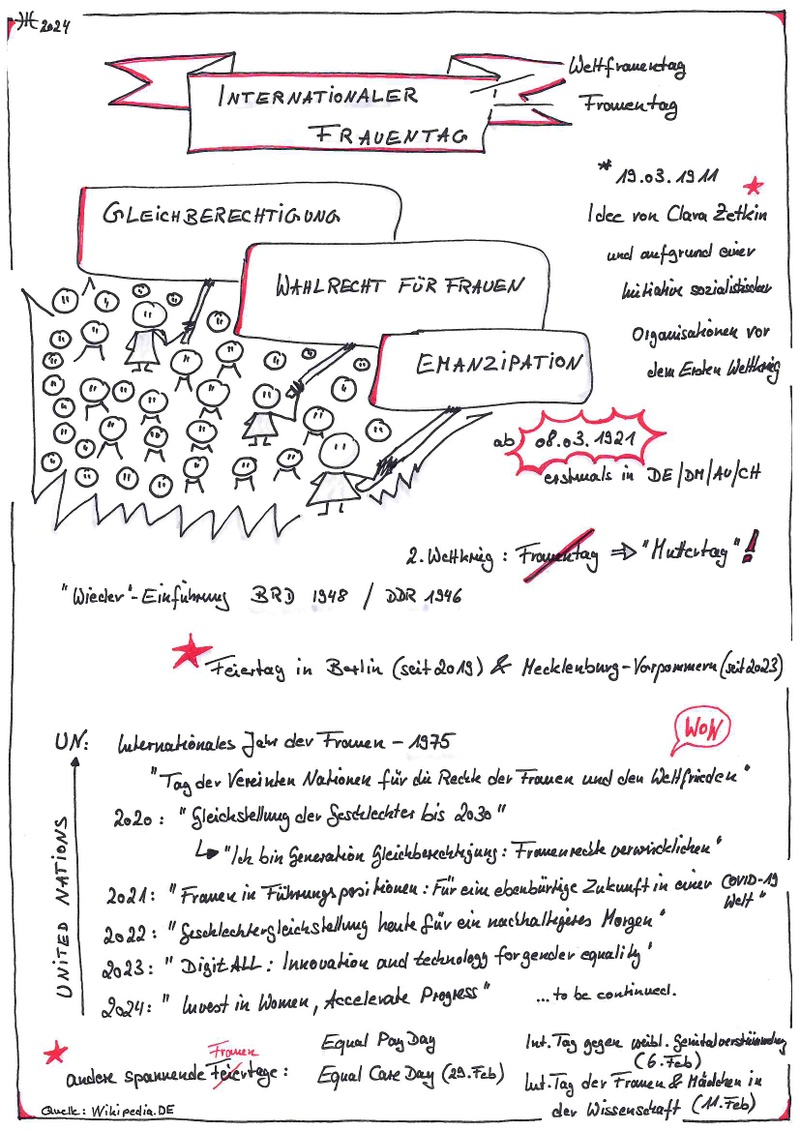 2024
INTERNATIONALER
FRAUENTAG
Weltfrauentag
Frauentag
* 19.03.1911
Idee von Clara Zetkin
und aufgrund einer
Initiative sozialistischer
Organisationen vor
dem Ersten Weltkrieg
GLEICHBERECHTIGUNG
WAHLRECHT FÜR FRAUEN
EMANZIPATION
ab 08.03.1921
erstmals in DE/DM/AU/CH
2. Weltkrieg : Frauentag ⇒ "Muttertag" !
"Wieder"-Einführung BRD 1948 / DDR 1946
Feiertag in Berlin (seit 2019) & Mecklenburg-Vorpommern (seit 2023)
WOW
UN: Internationales Jahr der Frauen – 1975
"Tag der Vereinten Nationen für die Rechte der Frauen und den Weltfrieden"
UNITED NATIONS
2020: "Gleichstellung der Geschlechter bis 2030"
↳ "Ich bin Generation Gleichberechtigung: Frauenrechte verwirklichen"
2021: "Frauen in Führungspositionen: Für eine ebenbürtige Zukunft in einer COVID-19
Welt"
2022: "Geschlechtergleichstellung heute für ein nachhaltigeres Morgen"
2023: "DigitALL: Innovation and technology for gender equality"
2024: "Invest in Women, Accelerate Progress" ...to be continued.
Frauen
andere spannende Feiertage:
Equal Pay Day
Equal Care Day (29. Feb)
Int. Tag gegen weibl. Genitalverstümmelung
(6. Feb)
Int. Tag der Frauen & Mädchen in
der Wissenschaft (11. Feb)
Quelle: Wikipedia.DE